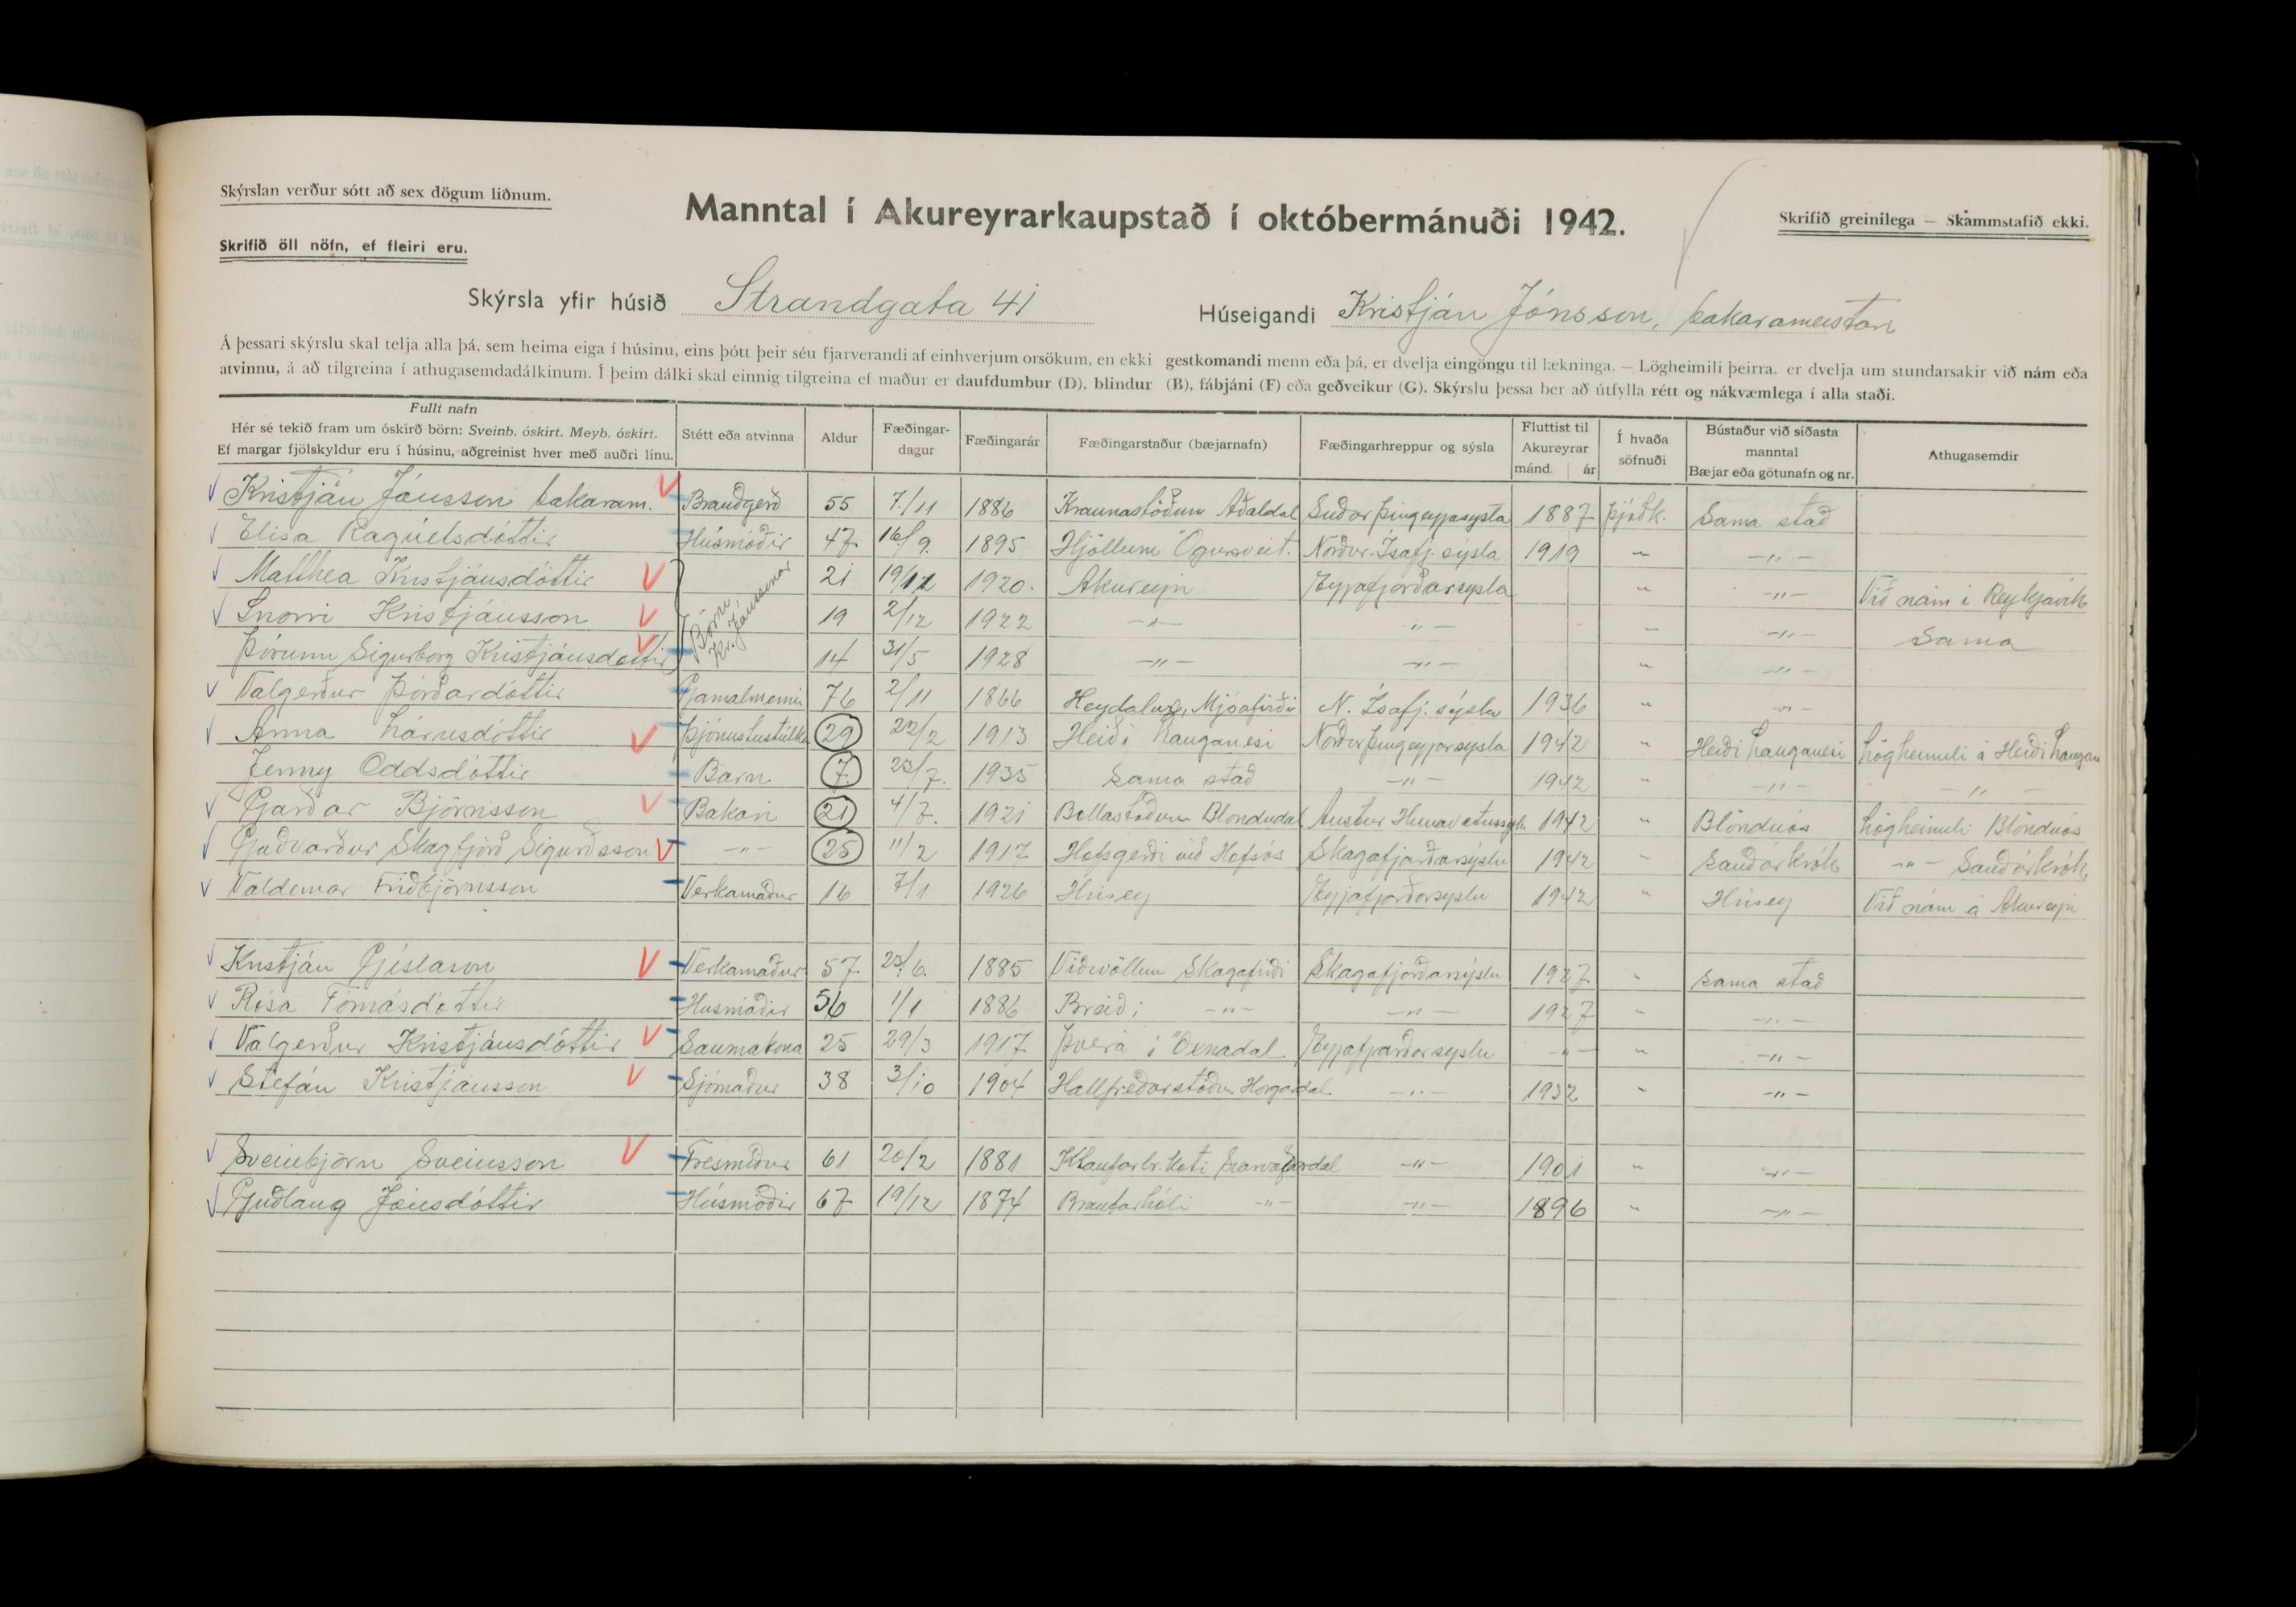 Skýrslan verður sótt að sex dögum liðnum.
Skrifið öll nöfn, ef fleiri eru.
Manntal í Akureyrarkaupstað í októbermánuði 1942.
Skrifið greinilega — Skammstafið ekki.
Skýrsla yfir húsið Strandgata 41
Húseigandi Kristján Jónsson, bakarameistari
Á þessari skýrslu skal telja alla þá, sem heima eiga í húsinu, eins þótt þeir séu fjarverandi af einhverjum orsökum, en ekki gestkomandi menn eða þá, er dvelja eingöngu til lækninga. — Lögheimili þeirra, er dvelja um stundarsakir við nám eða
atvinnu, á að tilgreina í athugasemdadálkinum. Í þeim dálki skal einnig tilgreina ef maður er daufdumbur (D), blindur (B), fábjáni (F) eða geðveikur (G). Skýrslu þessa ber að útfylla rétt og nákvæmlega í alla staði.
Fullt nafn
Hér sé tekið fram um óskírð börn: Sveinb. óskírt. Meyb. óskírt.
Ef margar fjölskyldur eru í húsinu, aðgreinist hver með auðri línu.
Stétt eða atvinna
Aldur
Fæðingar-
dagur
Fæðingarár
Fæðingarstaður (bæjarnafn)
Fæðingarhreppur og sýsla
Fluttist til
Akureyrar
mánd. ár
Í hvaða
söfnuði
Bústaður við síðasta
manntal
Bæjar eða götunafn og nr.
Athugasemdir
Kristján Jónsson bakaram. Brauðgerð 55 7/11 1886 Kraunastöðum Aðaldal Suður Þingeyjasýsla 1887 Þjóðk. Sama stað
Elísa Ragúelsdóttir Húsmóðir 47 16/9. 1895 Hjöllum Ögursveit. Norður-Ísafj. sýsla 1919 " —"—
Matthea Kristjánsdóttir Börn Kr. Jónssonar 21 19/12 1920. Akureyri Eyjafjarðarsýsla " —"— Við nám í Reykjavík
Snorri Kristjánsson 19 2/12 1922 —"— —"— " —"— Sama
Þórunn Sigurborg Kristjánsdóttir 14 31/5 1928 —"— —"— " —"—
Valgerður Þórðardóttir Gamalmenni 76 2/11 1866 Heydalur, Mjóafirði N. Ísafj. sýsla 1936 " —"—
Anna Lárusdóttir Þjónustustúlka 29 22/2 1913 Heiði Langanesi Norður Þingeyjarsýsla 1942 " Heiði Langanesi Lögheimili á Heiði Langan
Jenny Oddsdóttir Barn 7 23/7. 1935 Sama stað —"— 1942 " —"— —"—
Garðar Björnsson Bakari 21 4/7. 1921 Bollastöðum Blöndudal Austur Húnavatnssýsla 1942 " Blönduós Lögheimili Blönduós
Guðvarður Skagfjörð Sigurðsson —"— 25 11/2 1917 Hofsgerði við Hofsós Skagafjarðarsýslu 1942 " Sauðárkrók —"— Sauðárkrók
Valdemar Friðbjörnsson Verkamaður 16 7/1 1926 Hrísey Eyjafjarðarsýslu 1942 " Hrísey Við nám á Akureyri
Kristján Gíslason Verkamaður 57 23/6. 1885 Víðivöllum Skagafirði Skagafjarðarsýslu 1927 " Sama stað
Rósa Tómásdóttir Húsmóðir 56 1/1 1886 —"— —"— 1927 " —"—
Valgerður Kristjánsdóttir Saumakona 25 29/3 1917 Þverá í Öxnadal Eyjafjarðarsýslu —"— " —"—
Stefán Kristjánsson Sjómaður 38 3/10 1904 Hallfreðarstöðum Hörgárdal —"— 1932 " —"—
Sveinbjörn Sveinsson Trésmiður 61 20/2 1881 Svarfaðardal —"— 1901 " —"—
Guðlaug Jónsdóttir Húsmóðir 67 19/12 1874 Brautarhóli —"— —"— 1896 " —"—